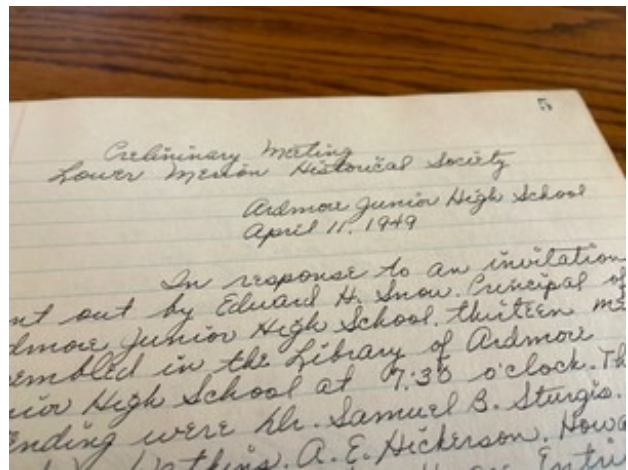 5
Preliminary Meeting
Lower Merion Historical Society
Ardmore Junior High School
April 11, 1949
In response to an invitation
nt out by Eduard H. Snow, Principal of
dmore Junior High School, thirteen me
embled in the Library of Ardmore
ior High School at 7:30 o'clock. Th
ending were Dr. Samuel B. Sturgis.
Watkins, A. E. Hickerson, Howa